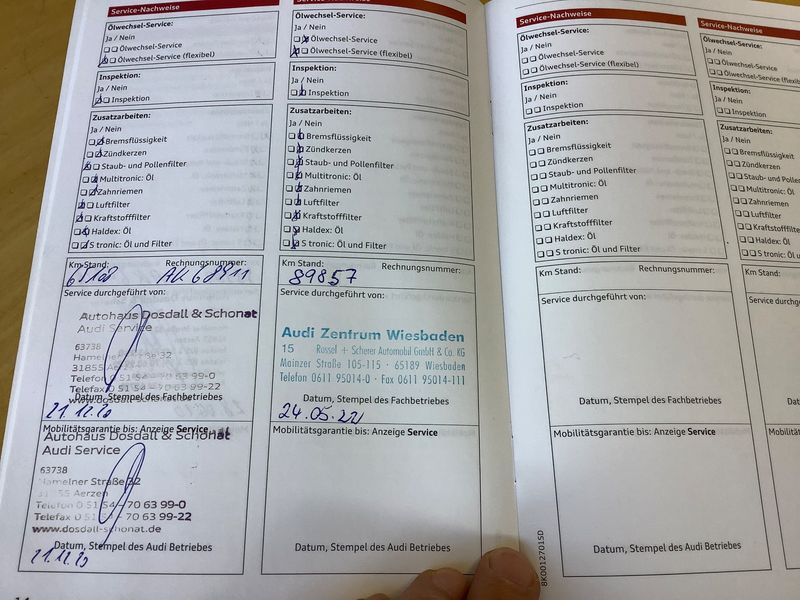 Service-Nachweise
Ölwechsel-Service:
Ja / Nein
Ölwechsel-Service
Ölwechsel-Service (flexibel)
Inspektion:
Ja / Nein
Inspektion
Zusatzarbeiten:
Ja / Nein
Bremsflüssigkeit
Zündkerzen
Staub- und Pollenfilter
Multitronic: Öl
Zahnriemen
Luftfilter
Kraftstofffilter
Haldex: Öl
S tronic: Öl und Filter
Km Stand: Rechnungsnummer:
Service durchgeführt von:
Autohaus Dosdall & Schonat
Audi Service
63738
Hamelner Straße 32
31855 Aerzen
Telefon 0 51 54 - 70 63 99-0
Telefax 0 51 54 - 70 63 99-22
www.dosdall-schonat.de
Datum, Stempel des Fachbetriebes
21.12.20
Mobilitätsgarantie bis: Anzeige Service
Autohaus Dosdall & Schonat
Audi Service
63738
Hamelner Straße 32
31855 Aerzen
Telefon 0 51 54 - 70 63 99-0
Telefax 0 51 54 - 70 63 99-22
www.dosdall-schonat.de
Datum, Stempel des Audi Betriebes
21.12.20
Service-Nachweise
Ölwechsel-Service:
Ja / Nein
Ölwechsel-Service
Ölwechsel-Service (flexibel)
Inspektion:
Ja / Nein
Inspektion
Zusatzarbeiten:
Ja / Nein
Bremsflüssigkeit
Zündkerzen
Staub- und Pollenfilter
Multitronic: Öl
Zahnriemen
Luftfilter
Kraftstofffilter
Haldex: Öl
S tronic: Öl und Filter
Km Stand: Rechnungsnummer:
89857
Service durchgeführt von:
Audi Zentrum Wiesbaden
15 Rossel + Scherer Automobil GmbH & Co. KG
Mainzer Straße 105-115 · 65189 Wiesbaden
Telefon 0611 95014-0 · Fax 0611 95014-111
Datum, Stempel des Fachbetriebes
24.05.22
Mobilitätsgarantie bis: Anzeige Service
Datum, Stempel des Audi Betriebes
Service-Nachweise
Ölwechsel-Service:
Ja / Nein
Ölwechsel-Service
Ölwechsel-Service (flexibel)
Inspektion:
Ja / Nein
Inspektion
Zusatzarbeiten:
Ja / Nein
Bremsflüssigkeit
Zündkerzen
Staub- und Pollenfilter
Multitronic: Öl
Zahnriemen
Luftfilter
Kraftstofffilter
Haldex: Öl
S tronic: Öl und Filter
Km Stand: Rechnungsnummer:
Service durchgeführt von:
Datum, Stempel des Fachbetriebes
Mobilitätsgarantie bis: Anzeige Service
Datum, Stempel des Audi Betriebes
8K0012701SD
Service-Nachweise
Ölwechsel-Service:
Ja / Nein
Ölwechsel-Service
Ölwechsel-Service
Inspektion:
Ja / Nein
Inspektion
Zusatzarbeiten:
Ja / Nein
Bremsflüssigkeit
Zündkerzen
Staub- und Pollen
Multitronic: Öl
Zahnriemen
Luftfilter
Kraftstofffilter
Haldex: Öl
S tronic: Öl und
Km Stand:
Service durchgeführt
Datum,
Mobilitätsgarantie
Datum,